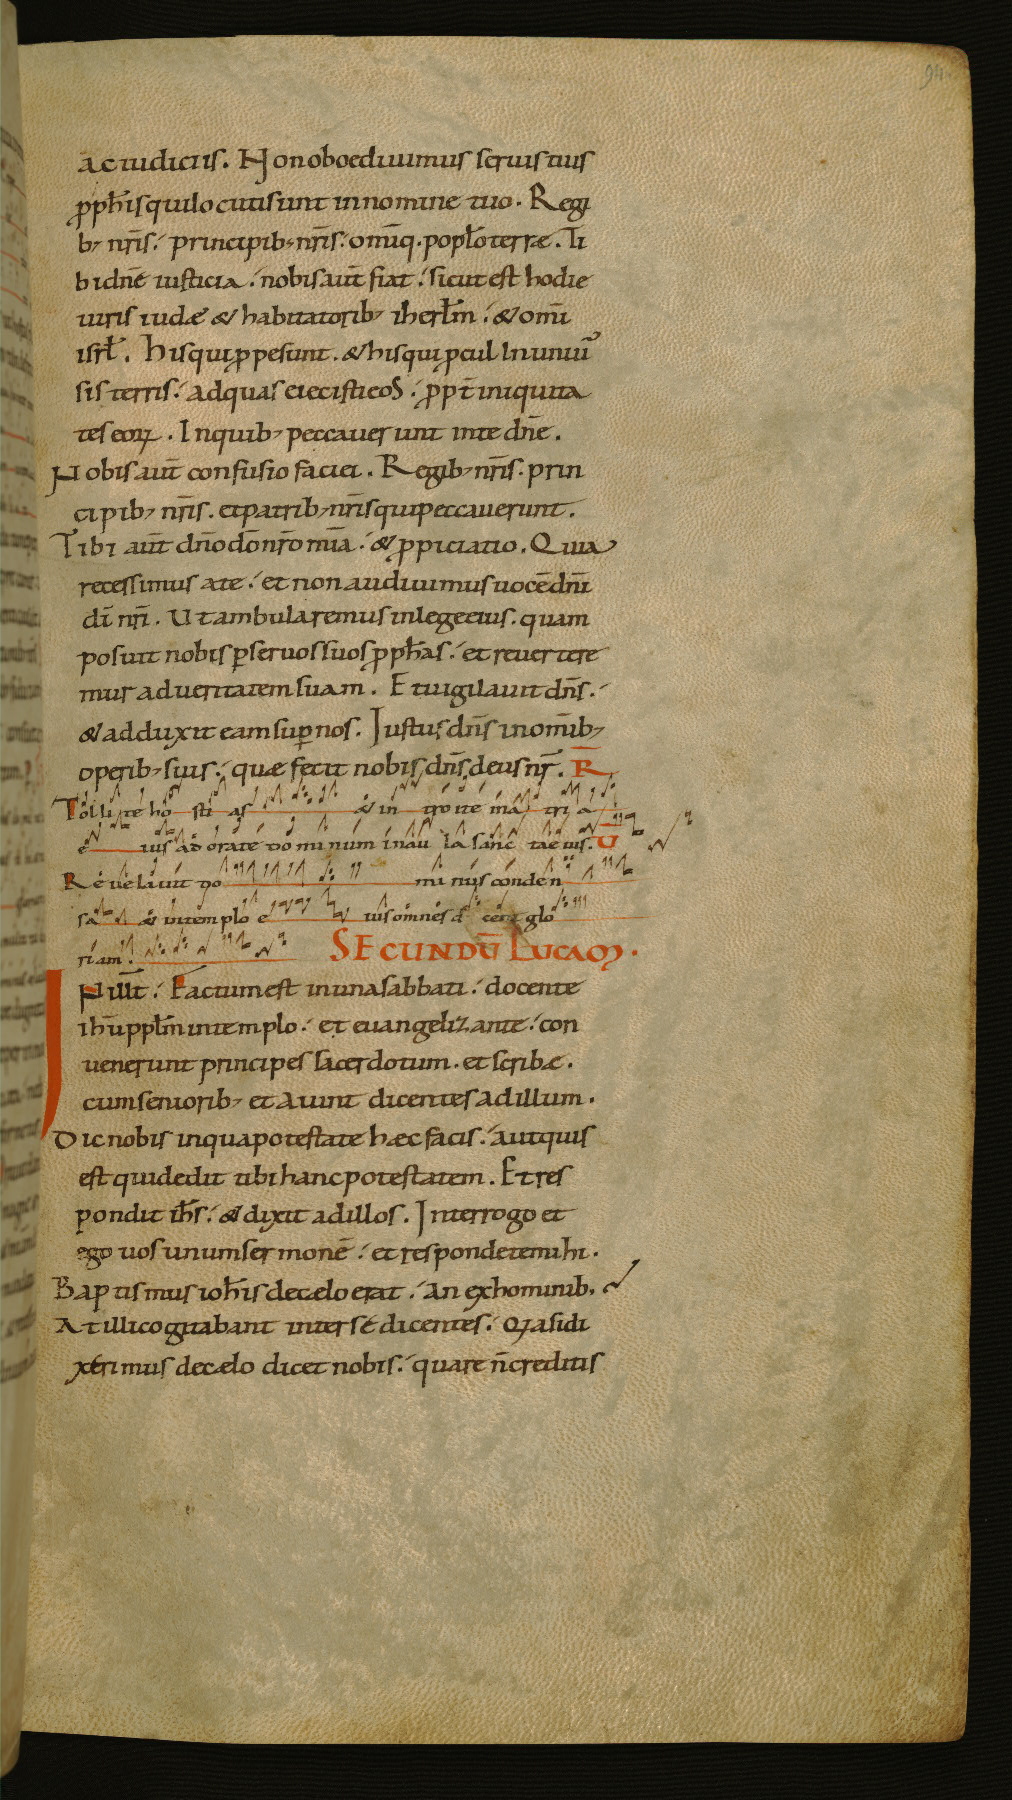 94
ac iudiciis. Non oboedivimus servis tuis
p̄ph̄is qui locuti sunt in nomine tuo. Regi
b; nr̄is. principib; nr̄is. omīq. poplo terræ. Ti
bi dn̄e iusticia. nobis aut̄ fiat. sicut est hodie
viris iudæ & habitatorib; iherl̄m. & omī
isrl̄. his qui ꝓpe sunt. & his qui ꝓcul In uniū̓
sis terris. ad quas eiecisti eos. ꝓpt̄ iniquita
tes eoꝝ. In quib; peccaverunt in te dn̄e.
Nobis aut̄ confusio faciei. Regib; nr̄is. prin
cipib; nr̄is. et patrib; nr̄is qui peccaverunt.
Tibi aut̄ dn̄o dō nr̄o mīa. & ꝓpiciatio. Quia
recessimus a te. et non audivimus vocē dn̄i
dī nr̄i. Ut ambularemus in lege eius. quam
posuit nobis ꝑ servos suos ꝓph̄as. et revertere
mur ad veritatem suam. Et vigilavit dn̄s.
& adduxit eam suꝑ nos. Iustus dn̄s in omīb;
operib; suis. quæ fecit nobis dn̄s deus nr̄. R̄
Tollite hostias & introite in atria
eius adorate dominum in aula sancta eius. V̄
Revelavit dominus conden
sa & in templo eius omnes dicent glo
riam. SECUNDŪ LUCAM.
IN illt̄. Factum est in una sabbati. docente
ih̄u ppl̄m in templo. et evangelizante. con
venerunt principes sacerdotum. et scribæ.
cum seniorib; et aiunt dicentes ad illum.
Dic nobis in qua potestate hæc facis. aut quis
est qui dedit tibi hanc potestatem. Et res
pondit ih̄s. & dixit ad illos. Interrogo et
ego vos unum sermonē. et respondete mihi.
Baptismus ioh̄is de cælo erat. an ex hominib;
At illi cogitabant inter se dicentes. Q̄a si di
xerimus de cælo dicet nobis. quare n̄ creditis